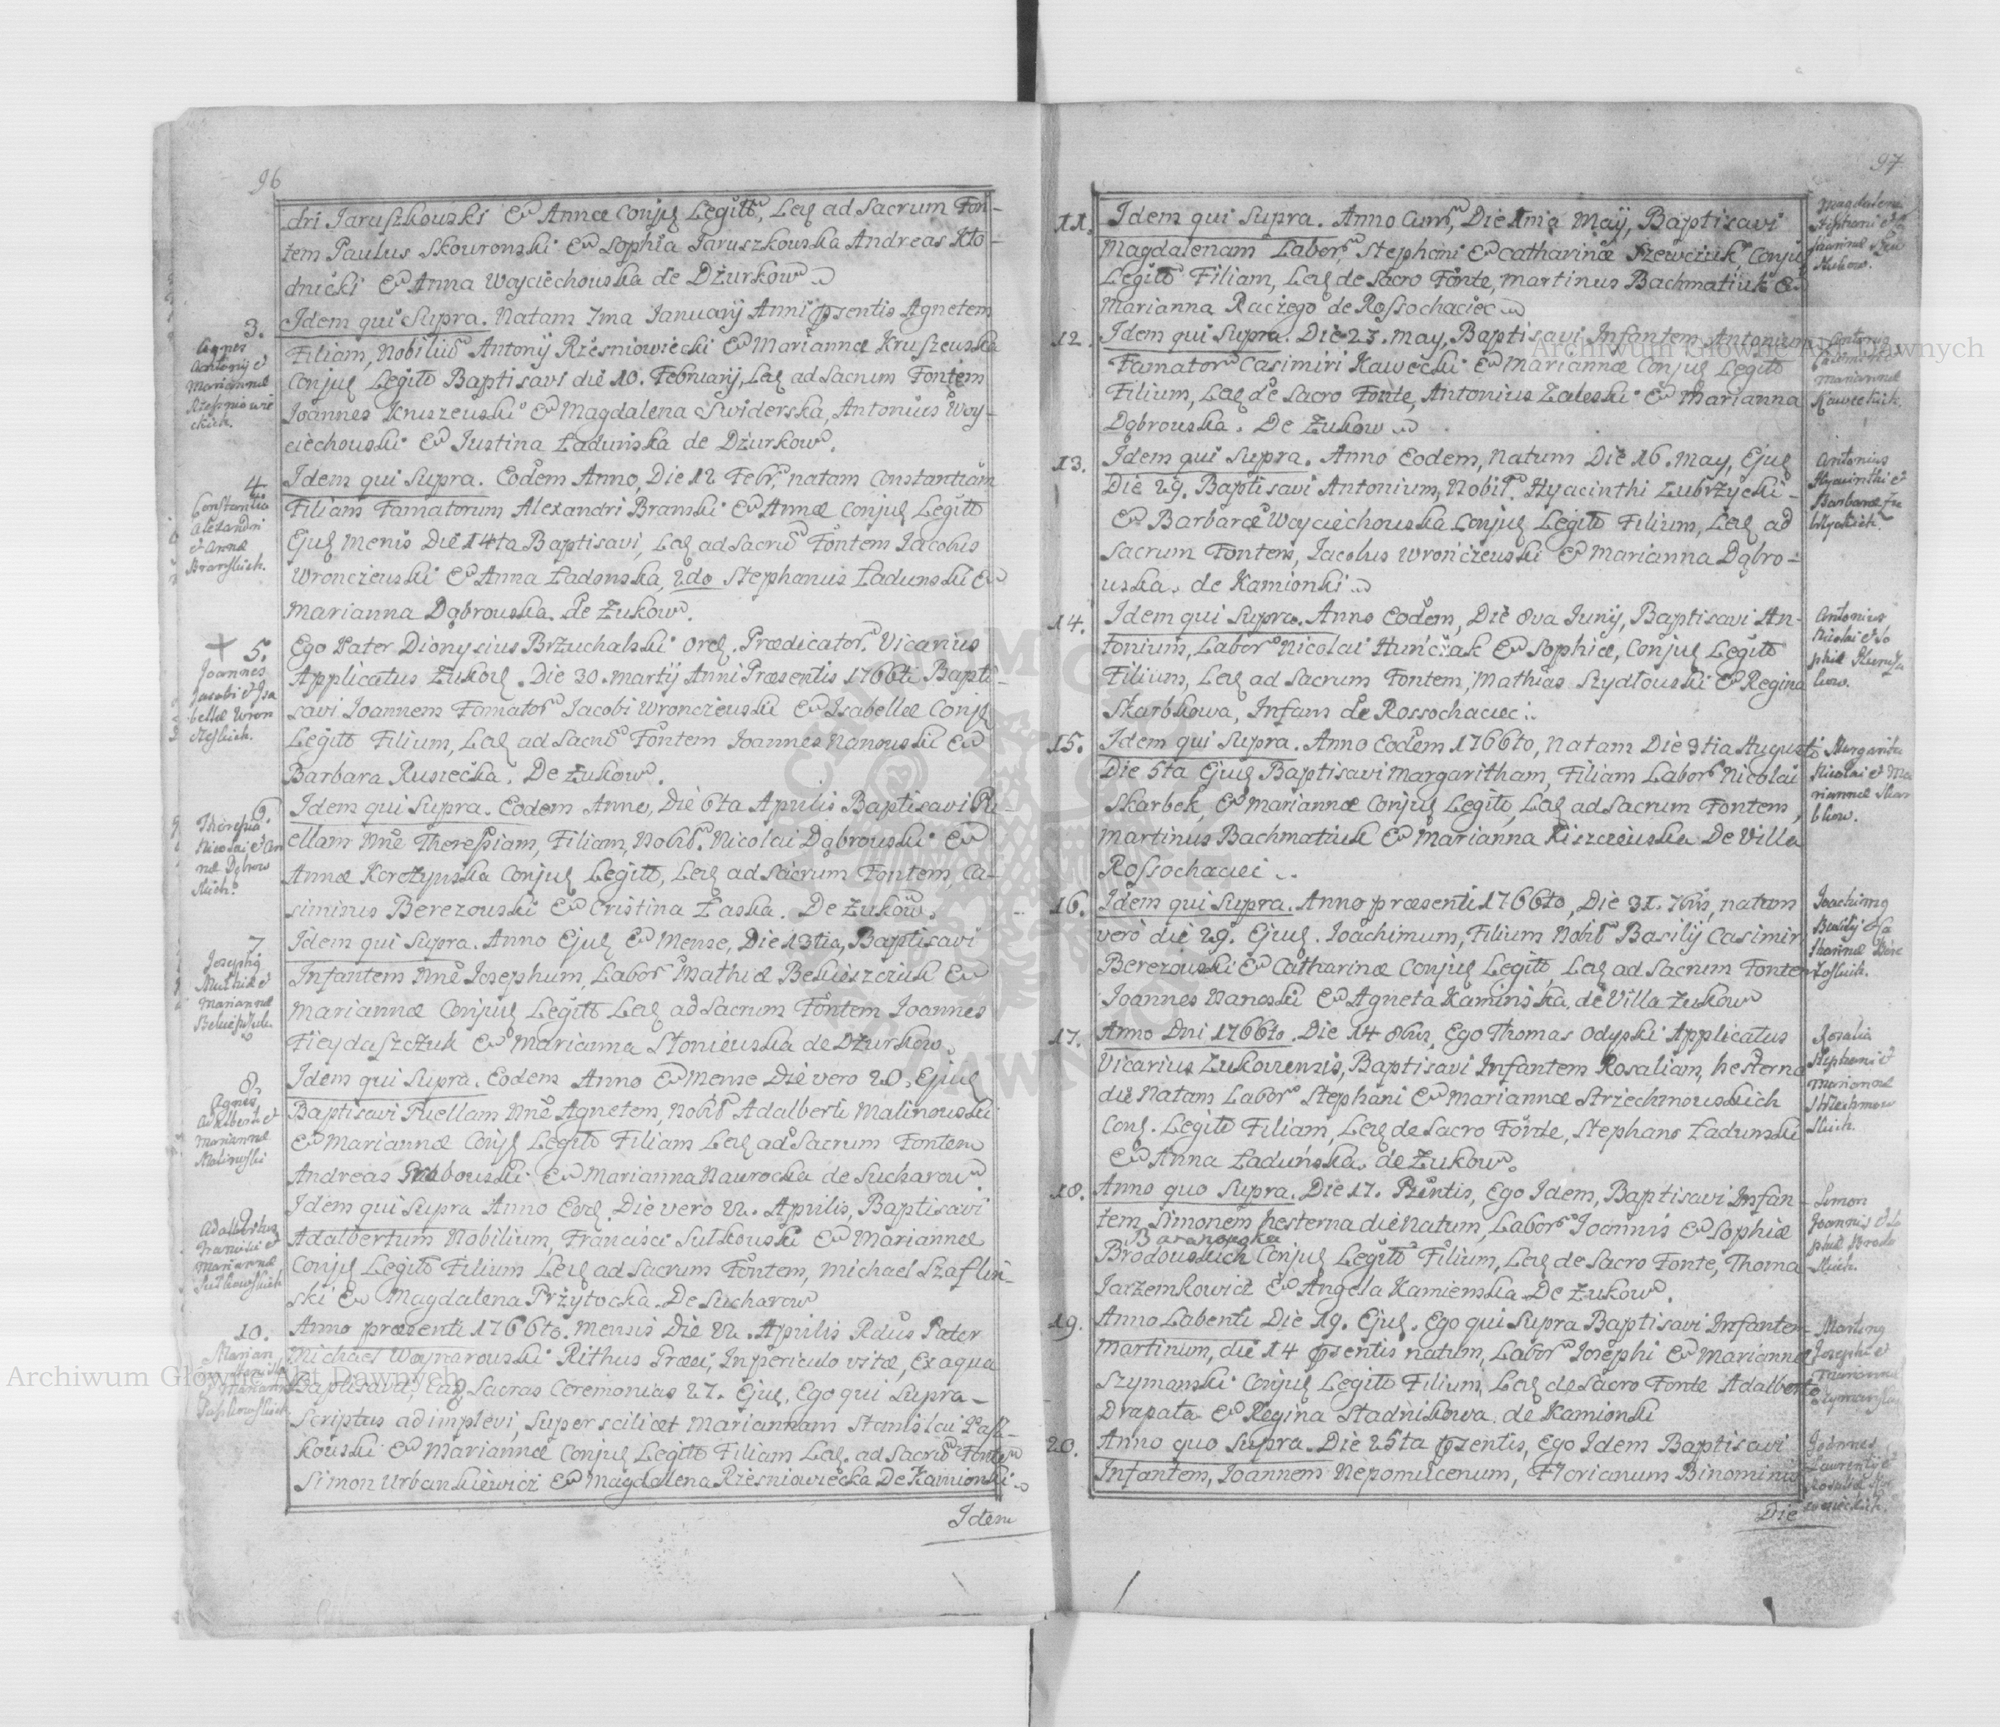 96
dri Jaruszkowski & Annæ Conjug Legittm, Lev ad Sacrum Fon-
tem Paulus Skowronski & Sophia Jaruszkowska Andreas Kło-
dnicki & Anna Woyciechowska de Dżurkow
3.
Agnes
Antonij et
Mariannæ
Idem qui Supra. Natam 7ma January Anni psentis Agnetem
Filiam, Nobiliũ Antonij Rześniowiecki & Mariannæ Kruszewska
Conjug Legitto Baptisavi die 10. February, Lev ad Sacrum Fontem
Joannes Kruszewski & Magdalena Swiderska, Antonius Woy-
ciechowski & Justina Ładuńska de Dżurkow.
4.
Constantia
Alexandri
et Annæ
Branskich.
Idem qui Supra. Eodem Anno, Die 12 Febr, natam Constantiam
Filiam Famatorum Alexandri Branski & Annæ Conjug Legitto
Ejug Menis Die 14ta Baptisavi, Lev ad Sacrũ Fontem Jacobus
Wronczewski & Anna Ładonska, 2do Stephanus Ładunski &
Marianna Dąbrowska. De Żukow.
5.
Joannes
Jacobi et Isa
bellæ Wron
Ego Pater Dionysius Brzuchalski Ord. Prædicator. Vicarius
Applicatus Żukov. Die 30. Martij Anni Præsentis 1766ti Bapti-
savi Joannem Famator Jacobi Wronczewski & Isabellæ Conjg
Legitto Filium, Lev ad Sacrũ Fontem Joannes Nanowski &
Barbara Rusiecka. De Żukow.
6.
Theresia
Nicolai et An
næ Dąbrow
skich.
Idem qui Supra. Eodem Anno, Die 6ta Aprilis Baptisavi Pu-
ellam Nñe Theresiam, Filiam, Nobil. Nicolai Dąbrowski &
Annæ Korczynska Conjug Legitto, Lev ad Sacrum Fontem, Ca-
simirus Berezowski & Cristina Łaska. De Żukow.
7.
Joseph9
Mathiæ et
Mariannæ
Idem qui Supra. Anno Ejug & Mense, Die 13tia, Baptisavi
Infantem Nñe Josephum, Labor Mathiæ Bekieszczuk &
Mariannæ Conjug Legitto Lev ad Sacrum Fontem Joannes
Fieydaszczuk & Marianna Słoniewska de Dżurkow
8.
Agnes
Adalberti et
Mariannæ
Malinowski
Idem qui Supra. Eodem Anno & Mense Die vero 20, Ejug
Baptisavi Puellam Nñe Agnetem, Nobil Adalberti Malinowski
& Mariannæ Conjg Legitto Filiam Lev ad Sacrum Fontem
Andreas Grabowski & Marianna Nawrocka de Sucharow.
9.
Adalbertus
Francisci et
Mariannæ
Sułkowskich
Idem qui Supra Anno Eod. Die vero 22. Aprilis, Baptisavi
Adalbertum Nobilium, Francisci Sułkowski & Mariannæ
Conjg Legitto Filium Lev ad Sacrum Fontem, Michael Szaflin-
ski & Magdalena Przytocka. De Sucharow.
10.
Marian
Anno præsenti 1766to. Mensis Die 22. Aprilis Rdus Pater
Michael Woynarowski Rithus Græci, In periculo vitæ, Ex aqua
Baptisavit, Sacras Ceremonias 27. Ejug. Ego qui Supra-
Scriptus adimplevi, Super scilicet Mariannam Stanislai Pasz-
kowski & Mariannæ Conjug Legitto Filiam Lev. ad Sacrũ Fontem
Simon Urbankiewicz & Magdalena Rześniowiecka De Kamionki
Idem
97
11.
Idem qui Supra. Anno Curr, Die 1ma May, Baptisavi
Magdalenam Labor, Stephani & Catharinæ Szewczuk, Conju
Legitto Filiam, Lev de Sacro Fonte, Martinus Bachmatiuk &
Marianna Raczego de Rossochaciec
Magdalena
Stephani et Ca
tharinæ Szew
czukow.
12.
Idem qui Supra. Die 23. May, Baptisavi Infantem Antonium
Famator Casimiri Kawecki & Mariannæ Conjug Legitto
Filium, Lev de Sacro Fonte, Antonius Zaleski & Marianna
Dąbrowska. De Żukow
Antoni9
Casimiri et
Mariannæ
Kaweckich.
13.
Idem qui Supra. Anno Eodem, Natum Die 16. May, Ejug
Die 29. Baptisavi Antonium, Nobil. Hyacinthi Zubrzycki-
& Barbaræ Woyciechowska Conjug Legitto Filium, Lev ad
Sacrum Fontem, Jacobus Wrończewski & Marianna Dąbro-
wska. de Kamionki
Antonius
Hyacinthi et
Barbaræ Zu
brzyckich.
14.
Idem qui Supra. Anno Eodem, Die 8va Junij, Baptisavi An-
tonium, Labor Nicolai Huńczak & Sophiæ, Conjug Legitto
Filium, Lev ad Sacrum Fontem, Mathias Szydłowski & Regina
Skarbkowa, Infans de Rossochaciec.
Antonius
Nicolai et So
phiæ
15.
Idem qui Supra. Anno Eodem 1766to, Natam Die 3tia Augusti
Die 5ta Ejug Baptisavi Margaritham, Filiam Labor Nicolai
Skarbek, & Mariannæ Conjug Legitto, Lev ad Sacrum Fontem,
Martinus Bachmatiuk & Marianna Kiszczewska De Villa
Rossochaciec
Margarita
Nicolai et Ma
riannæ Skar
bkow.
16.
Idem qui Supra. Anno præsenti 1766to, Die 31. 7bris, natum
vero die 29. Ejug. Joachimum, Filium Nobil Basilij Casimir
Berezowski & Catharinæ Conjug Legitto, Lev ad Sacrum Fontem
Joannes Nanoski & Agneta Kamińska, de Villa Żukow
Joachimg
Basilij et Ca
tharinæ Bere
zoskich.
17.
Anno Dni 1766to. Die 14 8bris, Ego Thomas Odyski Applicatus
Vicarius Żukoviensis, Baptisavi Infantem Rosaliam, hesterna
die Natam Labor Stephani & Mariannæ Strzechmowskich
Conj. Legitto Filiam, Lev de Sacro Fonte, Stephano Ładunski
& Anna Ładuńska. de Żukow.
Rosalia
Stephani et
Mariannæ
Strzechmow
skich.
18.
Anno quo Supra. Die 17. Pñtis, Ego Idem, Baptisavi Infan-
tem Simonem hesterna die Natum, Labor Joannis & Sophiæ
Baranowska
Brodowskich Conjug Legitto Filium, Lev de Sacro Fonte, Thoma
Jarzemkowicz & Angela Kamienska De Żukow.
Simon
Joannis et So
phiæ Brodo
skich.
19.
Anno Labenti Die 19. Ejug. Ego qui Supra Baptisavi Infantem
Martinum, die 14 psentis natum, Labor Josephi & Mariannæ
Szymanski Conjug Legitto Filium, Lev de Sacro Fonte Adalberto
Drapata & Regina Stadnikowa. de Kamionki
Marting
Josephi et
Mariannæ
20.
Anno quo Supra. Die 25ta psentis, Ego Idem Baptisavi
Infantem, Joannem Nepomucenum, Florianum Binominis
Joannes
Laurentij et
Rosaliæ
Die
Archiwum Główne Akt Dawnych
Archiwum Główne Akt Dawnych